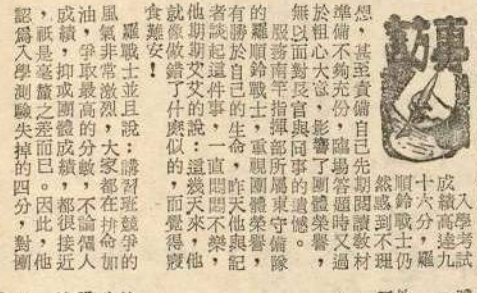 專訪
入學考試
成績高達九
十六分,羅
順鈴戰士仍
然感到不理
想,甚至責備自己先期閱讀教材
準備不夠充份,臨場答題時又過
於粗心大意,影響了團體榮譽,
無以面對長官與同事的遺憾。
服務南竿指揮部所屬東守備隊
的羅順鈴戰士,重視團體榮譽,
有勝於自己的生命,昨天他與記
者談起這件事,一直悶悶不樂,
他期期艾艾的說:這幾天來,他
就像做錯了什麼似的,而覺得寢
食難安!
羅戰士並且說:講習班競爭的
風氣非常激烈,大家都在拚命加
油,爭取最高的分數,不論個人
成績,抑或團體成績,都很接近
,祇是毫釐之差而已。因此,他
認爲入學測驗失掉的四分,對團